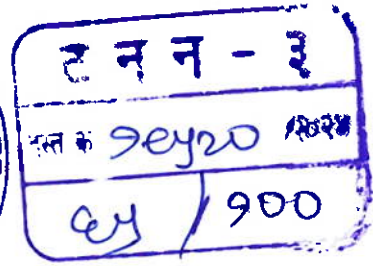 ट न न - ३
दस्त क्र १९५२० /२०२४
६५ / १००